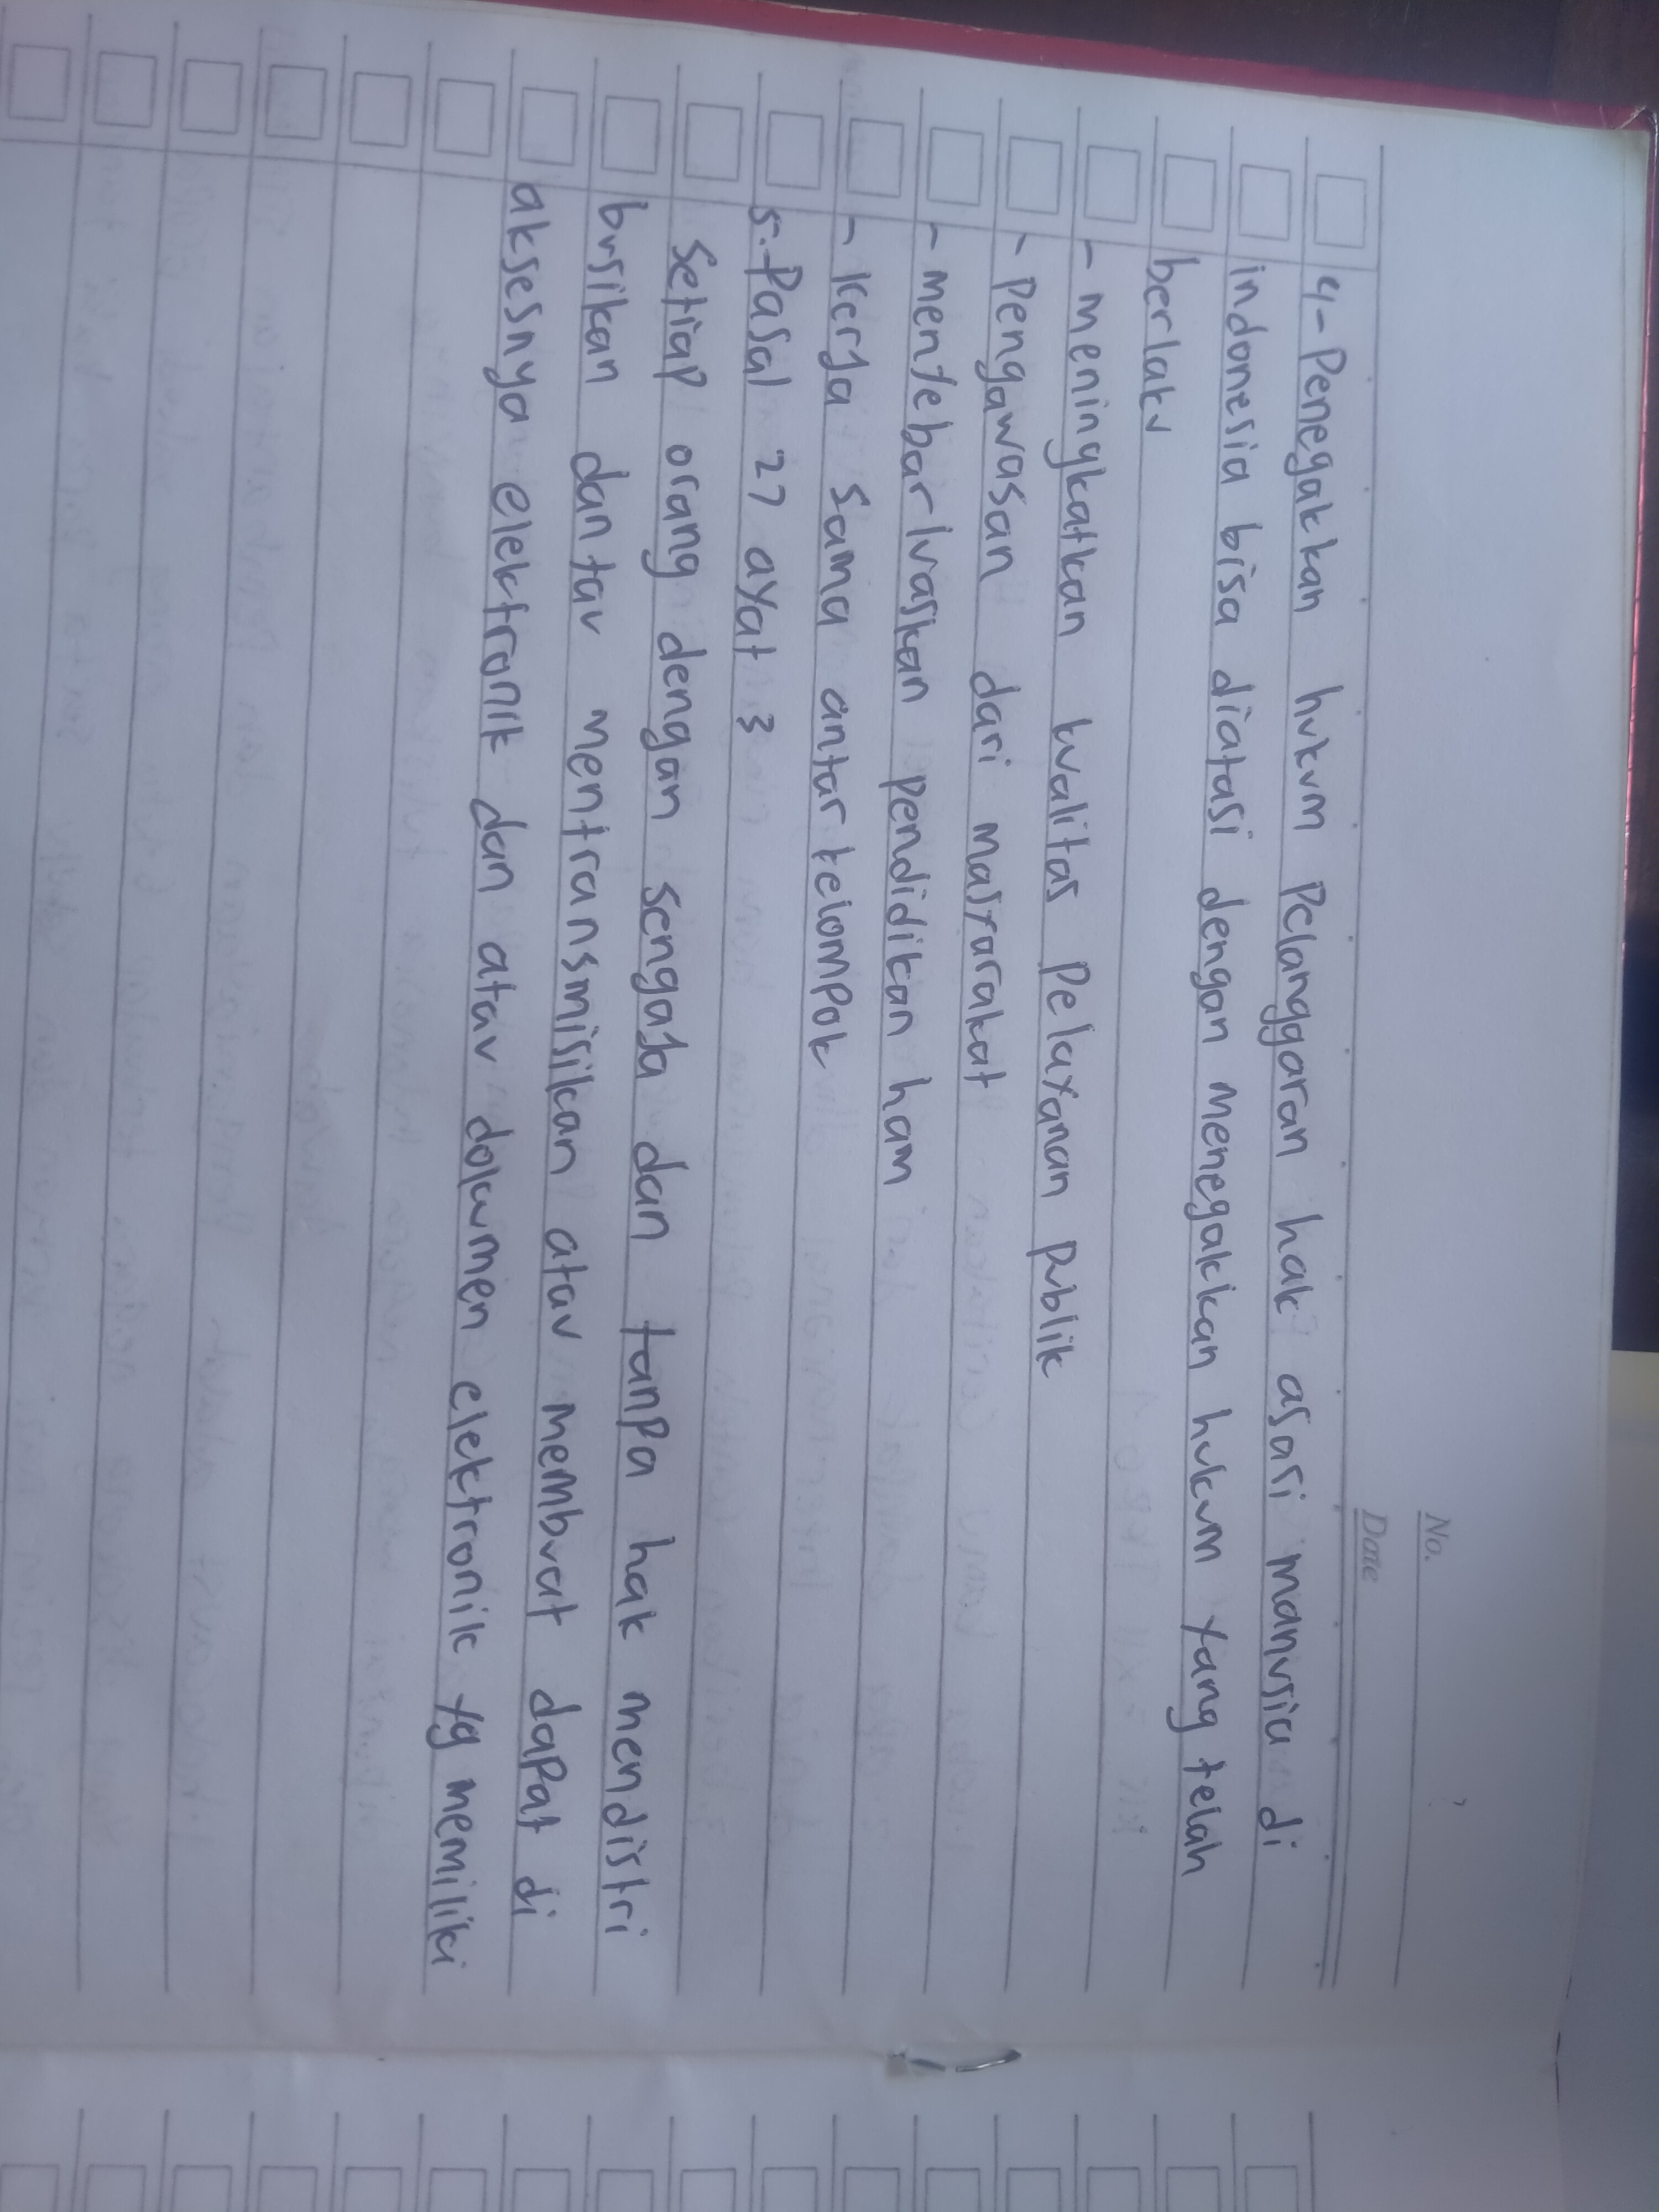 No.
Date
4-Penegakkan hukum Pelanggaran hak asasi manusia di
indonesia bisa diatasi dengan menegakkan hukum yang telah
berlaku
- meningkatkan kualitas Pelayanan Publik
- Pengawasan dari masyarakat
- menyebarluaskan Pendidikan ham
- kerja sama antar kelompok
5. Pasal 27 ayat 3
Setiap orang dengan sengaja dan tanpa hak mendistri
busikan dan tau mentransmisikan atau membuat dapat di
aksesnya elektronik dan atau dokumen elektronik yg memiliki